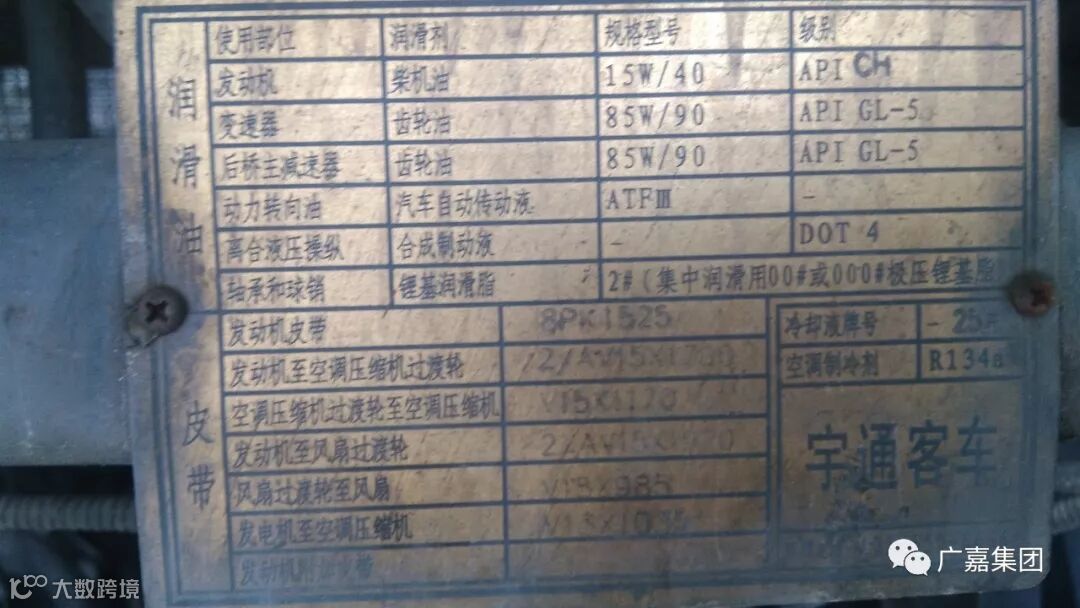 使用部位 润滑剂 规格型号 级别
发动机 柴机油 15W/40 API CH
变速器 齿轮油 85W/90 API GL-5
后桥主减速器 齿轮油 85W/90 API GL-5
动力转向油 汽车自动传动液 ATFⅢ -
离合液压操纵 合成制动液 - DOT 4
轴承和球销 锂基润滑脂 2#(集中润滑用00#或000#极压锂基脂
润滑油
发动机皮带 8PK1525
发动机至空调压缩机过渡轮
空调压缩机过渡轮至空调压缩机
发动机至风扇过渡轮
风扇过渡轮至风扇
发电机至空调压缩机
发动机
皮带
冷却液牌号 -25#
空调制冷剂 R134a
宇通客车
广嘉集团
大数跨境